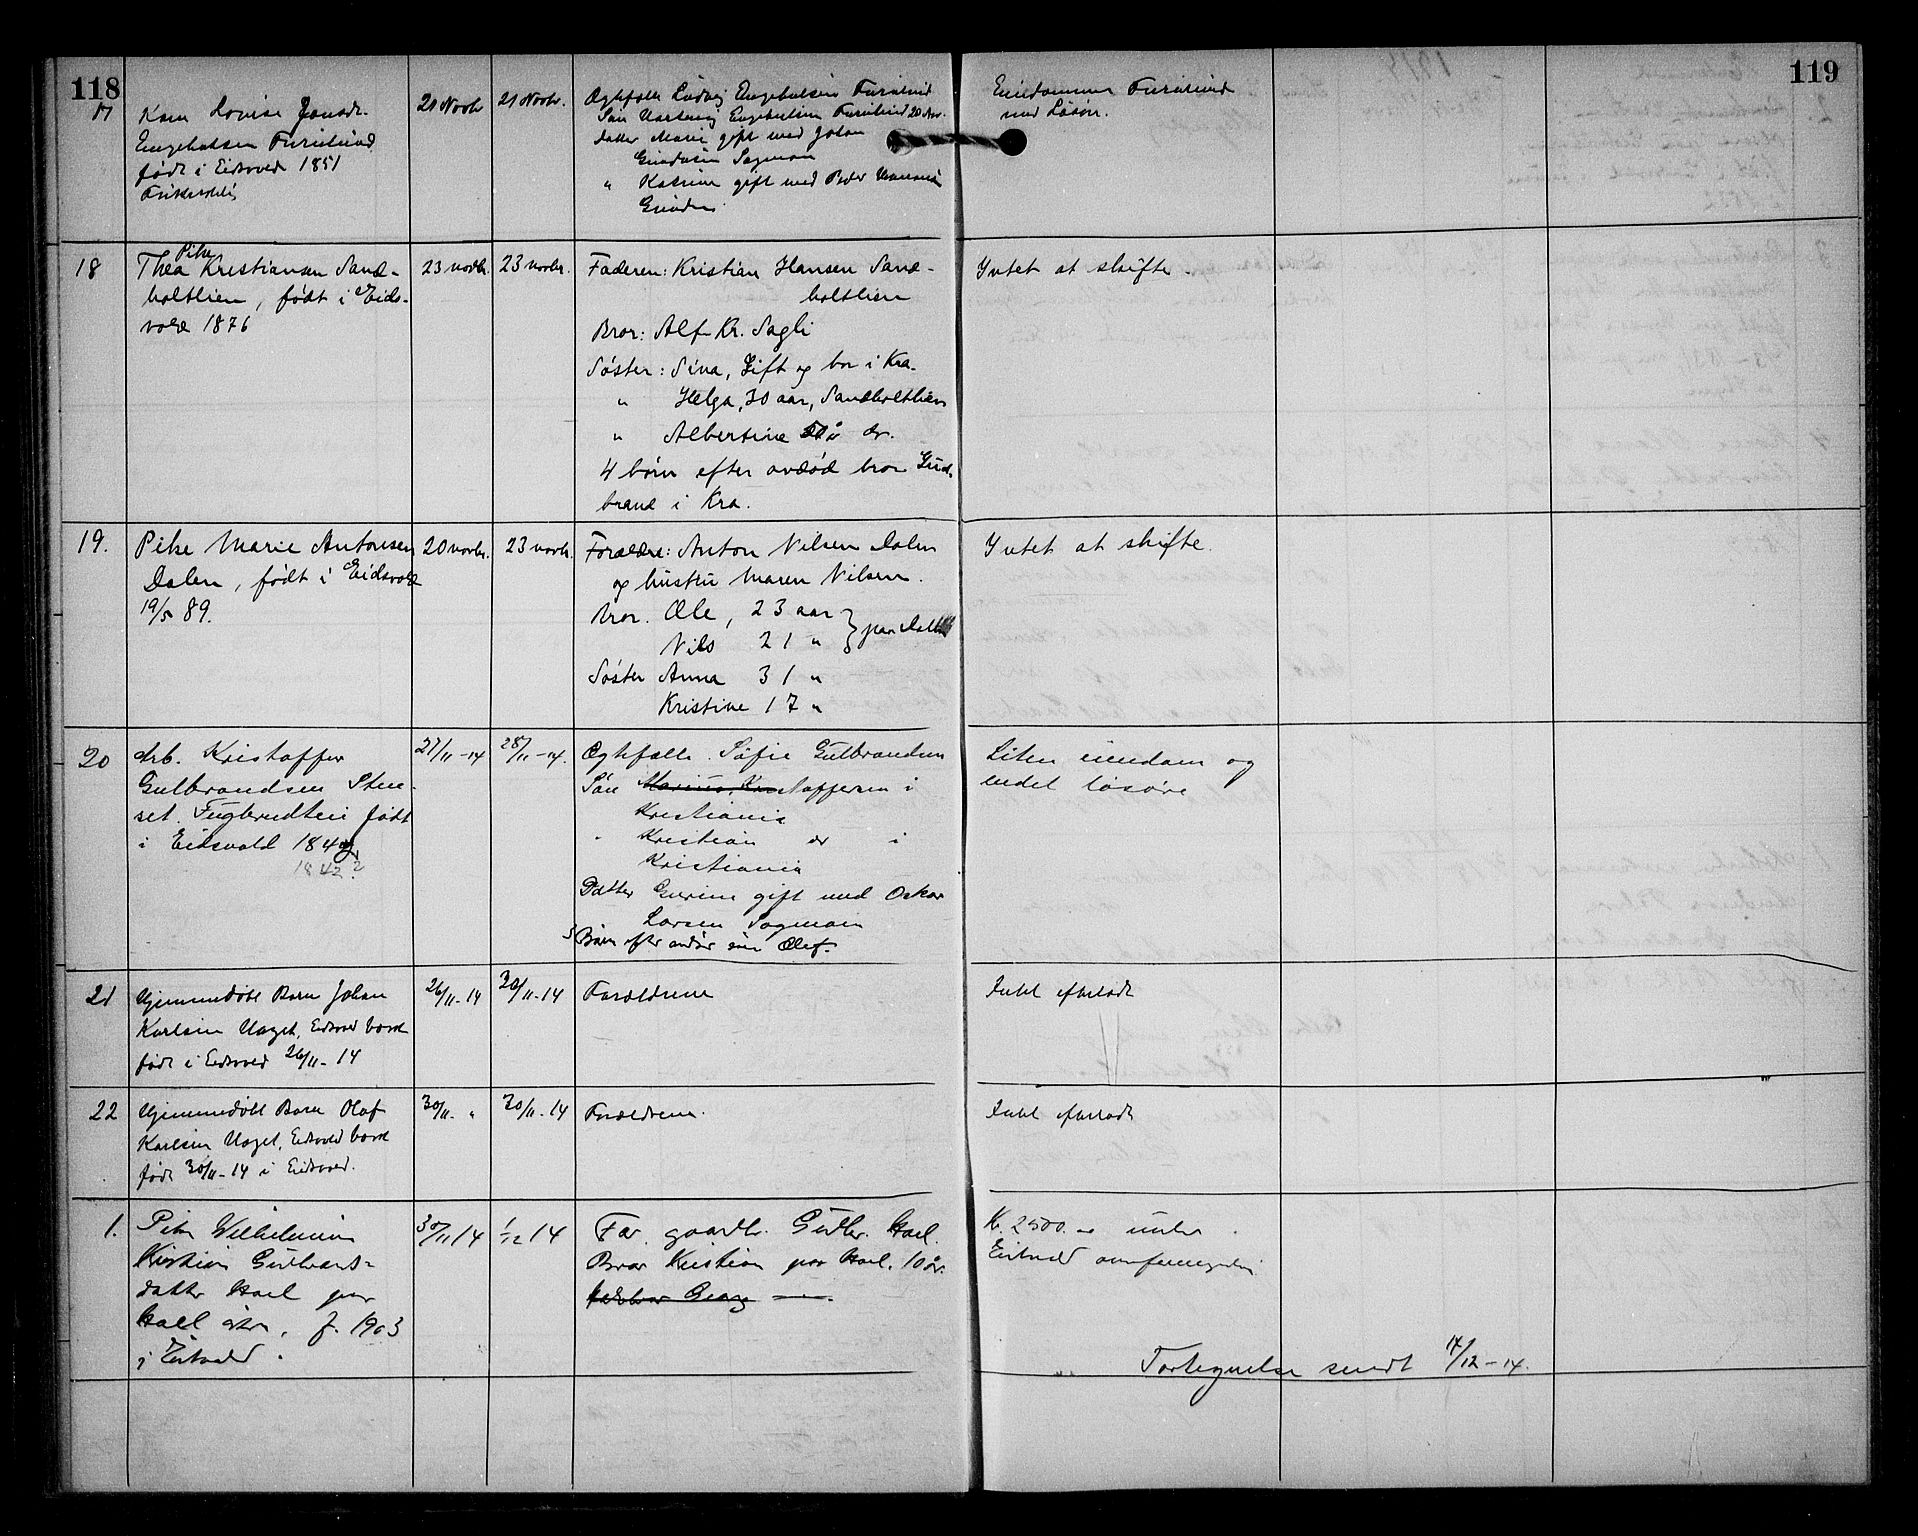 118
119
17
Karen Lovise Jensdr.
Engebretsen Furulund
født i Eidsvold 1851
21 Novbr
21 Novbr.
Ægtefælle Ludvig Engebretsen Furulund
Søn Engebretsen Furulund
datter Marie gift med Johan
Sagmoen
" Katrine gift med Peder
Eiendommen Furulund
med Løsøre.
18
Pike
Thea Kristiansen Sand-
holtlien, født i Eids-
vold 1876
23 novbr.
23 novbr.
Faderen: Kristian Hansen Sand-
holtlien
Bror: Alf Kr. Sagli
Søster: Sina, Gift og bor i Kra.
" Helga, 30 aar, Sandholtlien
" Albertine år.
4 børn efter avdød bror Gud-
brand i Kra.
Intet at skifte.
19.
Pike Marie Antonsen
Dalen, født i Eidsvold
19/5 89.
20 novbr.
23 novbr.
Forældre: Anton Nilsen Dalen
og hustru Maren Nilsen.
Bror. Ole, 23 aar
Nils 21 " } paa Dalen
Søster Anna 31 "
Kristine 17 "
Intet at skifte.
20
Arb. Kristoffer
Gulbrandsen Sten-
set. født
i Eidsvold 1842
1842?
27/11-14
28/11-14.
Ægtefælle. Sofie Gulbrandsen
Søn Marius Kristoffersen i
Kristiania
" Kristian do i
Kristiania
Datter Gurine gift med Oskar
Larsen Sagmoen
5 Børn efter avdøde søn Olaf.
Liten eiendom og
endel løsøre
21
Hjemmedøbt Barn Johan
Karlsen Haget, Eidsvold
født i Eidsvold 26/11-14
26/11-14
30/11-14
Forældrene
Intet efterladt
22
Hjemmedøbt Barn Olaf
Karlsen Haget, Eidsvold
født 30/11-14 i Eidsvold.
30/11- "
30/11-14
Forældrene.
Intet efterladt
1.
Pike Wilhelmine
Kristine Gulbrands-
datter Hoel paa
Hoel østre, f. 1903
i Eidsvold.
30/11 14
1/12 14
Far. gaardbr. Gulbr. Hoel.
Bror Kristian paa Hoel. 10 år.
Georg
Kr. 2500.- under
Eidsvold overformynderi
Fortegnelse sendt 17/12-14.